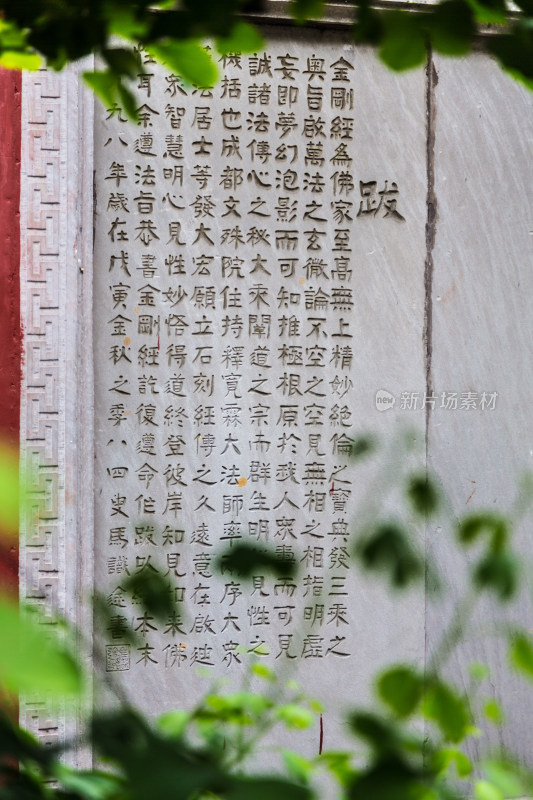 跋
金剛經為佛家至高無上精妙絕倫之寶典發三乘之
奧旨啟萬法之玄微論不空之空見無相之相指明虛
妄即夢幻泡影而可知推極根原於我人眾壽而可見
誠諸法傳心之秘大乘闡道之宗而群生明見性之
機括也成都文殊院住持釋寬霖大法師率兩序大眾
法居士等發大宏願立石刻經傳之久遠意在啟迷
眾智慧明心見性妙悟得道終登彼岸知見如來佛
性耳余遵法旨恭書金剛經訖復遵命作跋以紀本末
九八年歲在戊寅金秋之季八四叟馬識途書
新片场素材